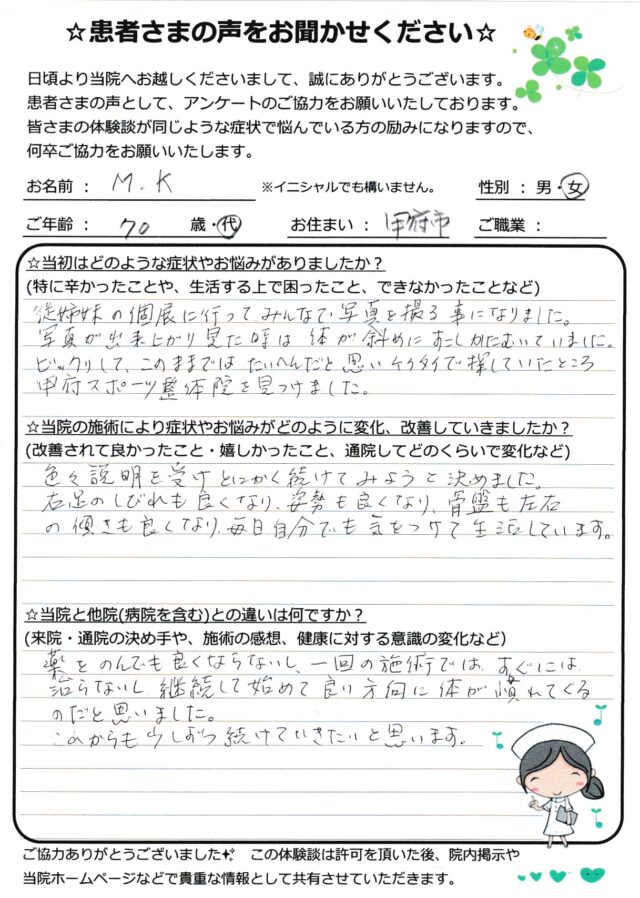 ☆患者さまの声をお聞かせください☆
日頃より当院へお越しくださいまして、誠にありがとうございます。
患者さまの声として、アンケートのご協力をお願いいたしております。
皆さまの体験談が同じような症状で悩んでいる方の励みになりますので、
何卒ご協力をお願いいたします。
お名前 : M.K ※イニシャルでも構いません。 性別 : 男・女
ご年齢 : 70 歳・代 お住まい : 甲府市 ご職業 :
☆当初はどのような症状やお悩みがありましたか？
(特に辛かったことや、生活する上で困ったこと、できなかったことなど)
従姉妹の個展に行ってみんなで写真を撮る事になりました。
写真が出来上がり見た時は体が斜めにすこしかたむいていました。
ビックリして、このままではたいへんだと思いケイタイで探していたところ
甲府スポーツ整体院を見つけました。
☆当院の施術により症状やお悩みがどのように変化、改善していきましたか？
(改善されて良かったこと・嬉しかったこと、通院してどのくらいで変化など)
色々説明を受けとにかく続けてみようと決めました。
右足のしびれも良くなり、姿勢も良くなり、骨盤も左右
の傾きも良くなり、毎日自分でも気をつけて生活しています。
☆当院と他院(病院を含む)との違いは何ですか？
(来院・通院の決め手や、施術の感想、健康に対する意識の変化など)
薬をのんでも良くならないし、一回の施術では、すぐには
治らないし、継続して始めて良い方向に体が慣れてくる
のだと思いました。
これからも少しずつ続けていきたいと思います。
ご協力ありがとうございました この体験談は許可を頂いた後、院内掲示や
当院ホームページなどで貴重な情報として共有させていただきます。